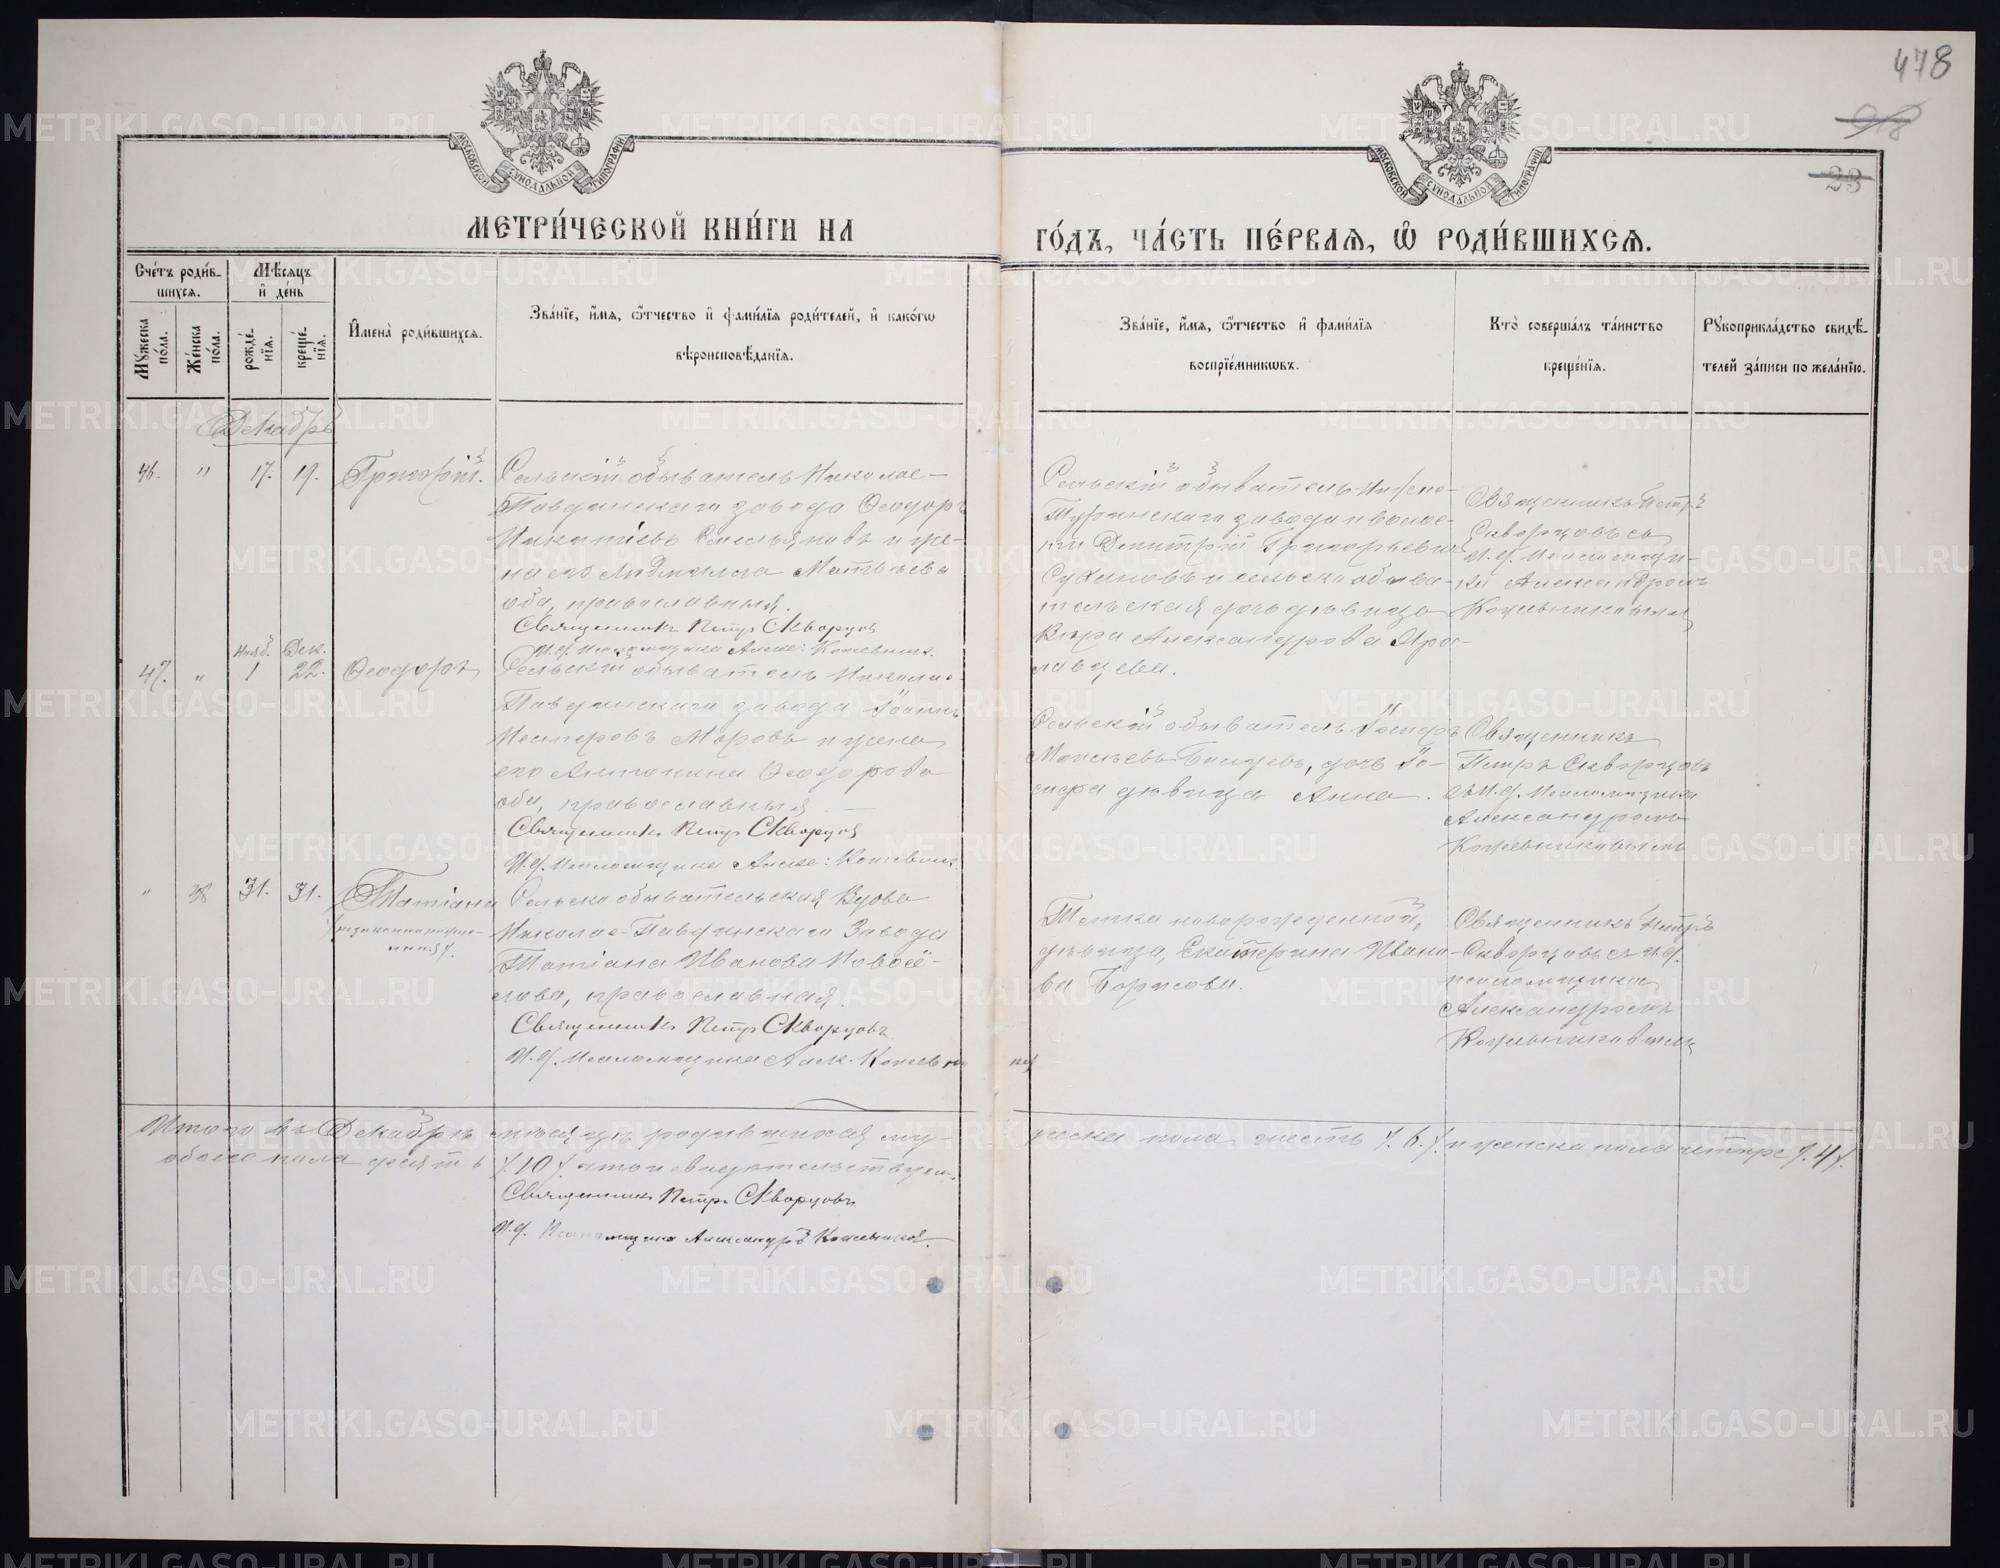 478
23
МОСКОВСКОЙ СѴНОДАЛЬНОЙ ТИПОГРАФІИ
МОСКОВСКОЙ СѴНОДАЛЬНОЙ ТИПОГРАФІИ
МЕТРИ́ЧЕСКОЙ КНИ́ГИ НА
ГО́ДЪ, ЧА́СТЬ ПЕ́РВАЯ, Ѡ РОДИ́ВШИХСЯ.
Сче́тъ роди́в-
шихся.
Мѣ́сяцъ
и де́нь
Мꙋ́жеска по́ла.
Же́нска по́ла.
рожде́-
нїя.
креще́-
нїя.
Имена̀ роди́вшихся.
Зва́нїе, и́мя, ѻ́тчество и фами́лїя роди́телей, и како́гѡ
вѣроисповѣ́данїя.
Зва́нїе, и́мя, ѻ́тчество и фами́лїя
воспрїе́мникѡвъ.
Кто̀ соверша́лъ та́инство
креще́нїя.
Рꙋкоприкла́дство свидѣ́-
телей за́писи по жела́нїю.
Декабрь
46. " 17. 19. Григорій.
Сельскій обыватель Николае-
Павдинскаго завода Ѳеодоръ
Игнатіевъ Емельяновъ и же-
на его Людмила Матвѣева
оба православныя.
Священникъ Петръ Скворцов
И. д. Псаломщика Алекс: Кожевник.
Сельскій обыватель Нижне-
Туринскаго завода и волос-
ти Димитрій Григорьевъ
Сухановъ и сельско обыва-
тельская дочь дѣвица
Вѣра Александрова Яро-
славцева.
Священникъ Петръ
Скворцовъ съ
и. д. Псаломщи-
ка Александромъ
Кожевниковымъ
Нояб. Дек.
47. " 1 22. Ѳеодоръ
Сельскій обыватель Николае-
Павдинскаго завода Іоаннъ
Несторовъ Моровъ и жена
его Антонина Ѳеодорова
оба, православныя. —
Священникъ Петръ Скворцов
И. д. Псаломщика Алекс: Кожевник.
Сельскій обыватель Іосифъ
дочь Іо-
сифа дѣвица Анна.
Священникъ
Петръ Скворцовъ
съ И. д. Псаломщика
Александромъ
Кожевниковымъ
" 31. 31. Татіана
Сельско обывательская вдова
Николае-Павдинскаго Завода
Татіана Иванова Новосё-
лова, православная.
Священникъ Петръ Скворцовъ
И. д. Псаломщика Алек. Кожевни
ков
Тетка новорожденной,
дѣвица, Екатерина Ивано-
ва Борисова.
Священникъ Петръ
Скворцовъ съ и. д.
псаломщика
Александромъ
Кожевниковымъ
Итого въ Декабрѣ мѣсяцѣ родившихся му-
жеска пола шесть /. 6 /. и женска пола четыре /. 4 /.
обоего пола десять /. 10 /. что и свидѣтельствуемъ
Священникъ Петръ Скворцовъ
И. д. Псаломщика Александръ Кожевников.
METRIKI.GASO-URAL.RU